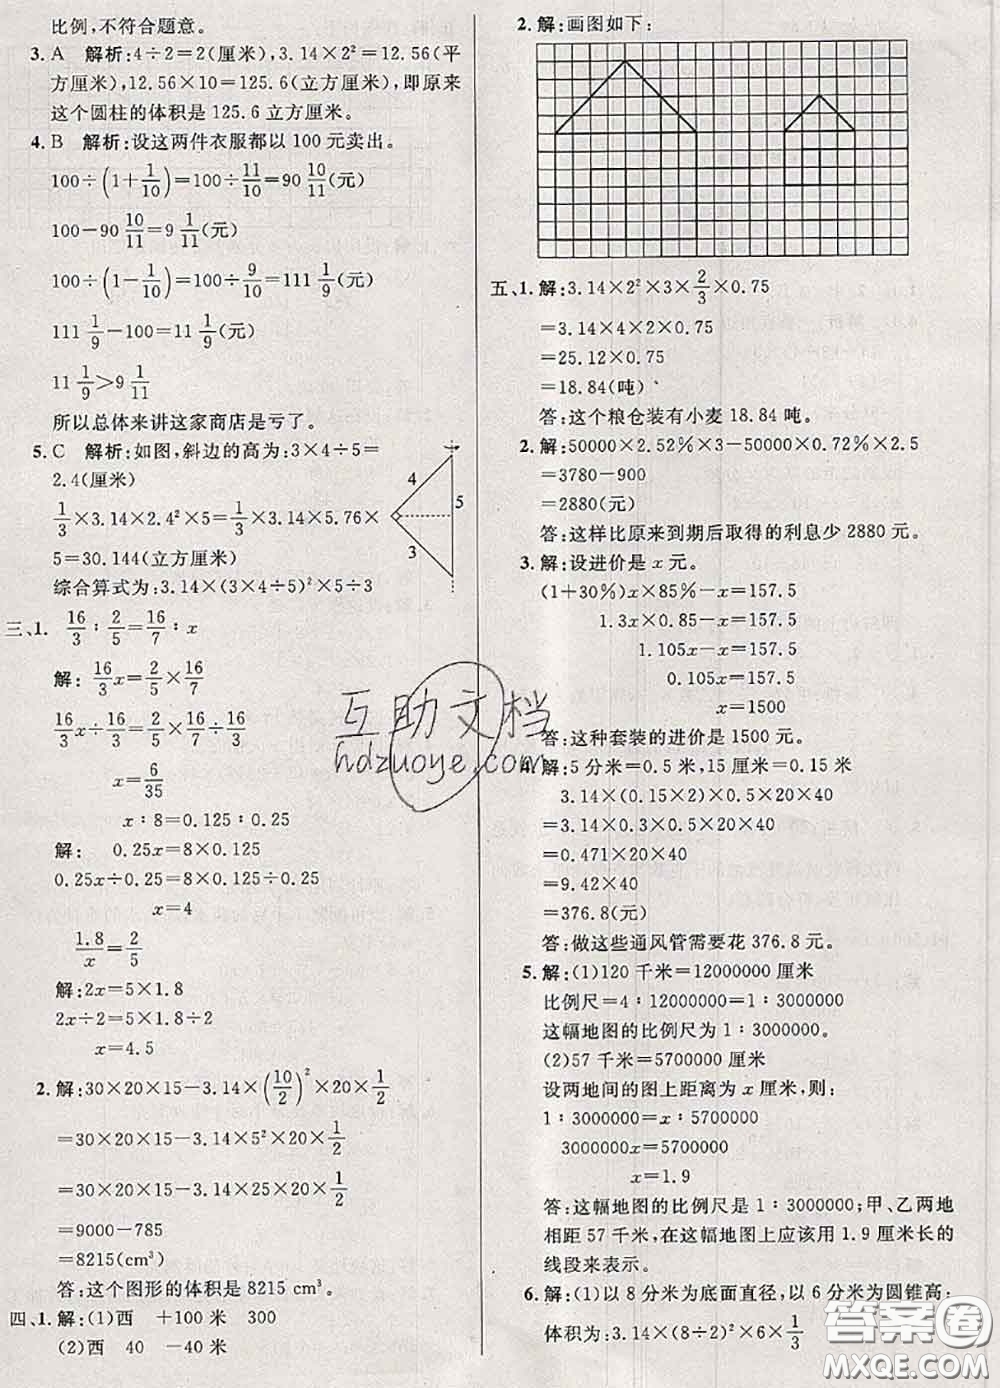 比例,不符合题意。
3. A 解析:4÷2=2(厘米),3.14×2²=12.56(平
方厘米),12.56×10=125.6(立方厘米),即原来
这个圆柱的体积是 125.6 立方厘米。
4. B 解析:设这两件衣服都以 100 元卖出。
100÷(1+1/10)=100÷11/10=90 10/11(元)
100-90 10/11=9 1/11(元)
100÷(1-1/10)=100÷9/10=111 1/9(元)
111 1/9-100=11 1/9(元)
11 1/9>9 1/11
所以总体来讲这家商店是亏了。
5. C 解析:如图,斜边的高为:3×4÷5=
2.4(厘米)
1/3×3.14×2.4²×5=1/3×3.14×5.76×
5=30.144(立方厘米)
综合算式为:3.14×(3×4÷5)²×5÷3
4
5
3
三、1. 16/3∶2/5=16/7∶x
解: 16/3x=2/5×16/7
16/3x÷16/3=2/5×16/7÷16/3
x=6/35
x∶8=0.125∶0.25
解: 0.25x=8×0.125
0.25x÷0.25=8×0.125÷0.25
x=4
1.8/x=2/5
解:2x=5×1.8
2x÷2=5×1.8÷2
x=4.5
2. 解:30×20×15-3.14×(10/2)²×20×1/2
=30×20×15-3.14×5²×20×1/2
=30×20×15-3.14×25×20×1/2
=9000-785
=8215(cm³)
答:这个图形的体积是 8215 cm³。
四、1. 解:(1)西 +100 米 300
(2)西 40 -40 米
2. 解:画图如下:
五、1. 解:3.14×2²×3×2/3×0.75
=3.14×4×2×0.75
=25.12×0.75
=18.84(吨)
答:这个粮仓装有小麦 18.84 吨。
2. 解:50000×2.52%×3-50000×0.72%×2.5
=3780-900
=2880(元)
答:这样比原来到期后取得的利息少 2880 元。
3. 解:设进价是 x 元。
(1+30%)x×85%-x=157.5
1.3x×0.85-x=157.5
1.105x-x=157.5
0.105x=157.5
x=1500
答:这种套装的进价是 1500 元。
4. 解:5 分米=0.5 米,15 厘米=0.15 米
3.14×(0.15×2)×0.5×20×40
=3.14×0.3×0.5×20×40
=0.471×20×40
=9.42×40
=376.8(元)
答:做这些通风管需要花 376.8 元。
5. 解:(1)120 千米=12000000 厘米
比例尺=4∶12000000=1∶3000000
这幅地图的比例尺为 1∶3000000。
(2)57 千米=5700000 厘米
设两地间的图上距离为 x 厘米,则:
1∶3000000=x∶5700000
3000000x=5700000
x=1.9
答:这幅地图的比例尺是 1∶3000000;甲、乙两地
相距 57 千米,在这幅地图上应该用 1.9 厘米长的
线段来表示。
6. 解:(1)以 8 分米为底面直径,以 6 分米为圆锥高:
体积为:3.14×(8÷2)²×6×1/3
互助文档
hdzuoye.com
答案圈
MXQE.COM